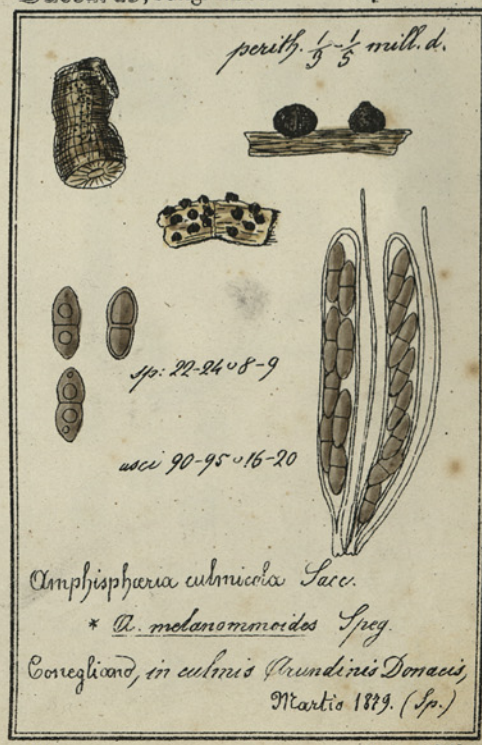 perith. 1/3 - 1/5 mill. d.
sp: 22-24 ∪ 8-9
asci 90-95 ∪ 16-20
Amphisphæria culmicola Sacc.
* A. melanommoides Speg.
Conegliano, in culmis Arundinis Donacis,
Martio 1879. (Sp.)